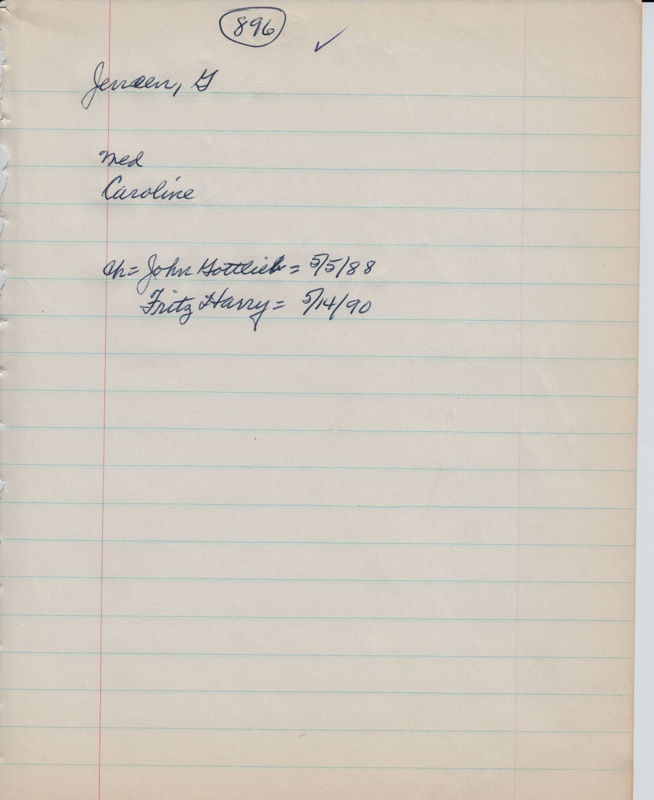 896 ✓
Jensen, G
med
Caroline
ch = John Gottlieb = 5/5/88
Fritz Harry = 5/14/90